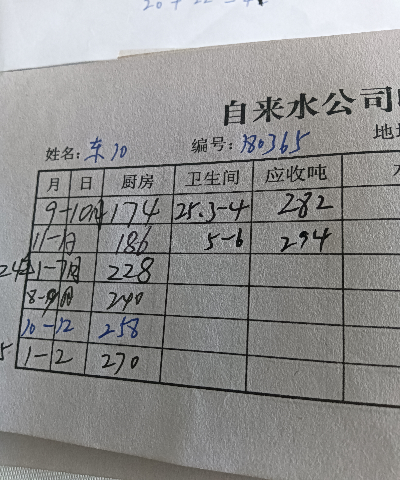 20+22=4
自来水公司
姓名: 东10 编号: 180365 地
月 日 厨房 卫生间 应收吨
9-10月 174 25.3-4 282
11-月 186 5-6 294
24年1-7月 228
8-9月 240
10-12 258
5 1-2 270